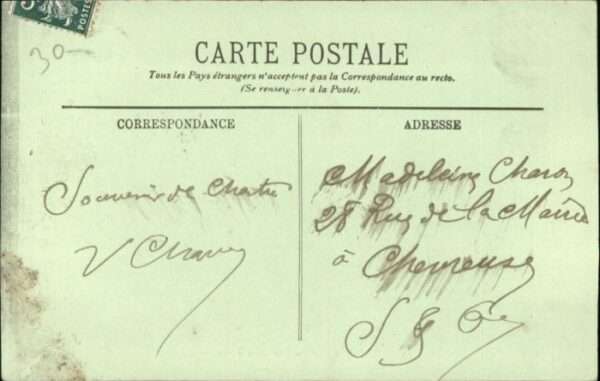 5
POSTES
30-
CARTE POSTALE
Tous les Pays étrangers n'acceptent pas la Correspondance au recto.
(Se renseigner à la Poste).
CORRESPONDANCE
ADRESSE
Souvenir de Chartres
V Charon
Madeleine Charon
28 Rue de la Mairie
à Chevreuse
S & O